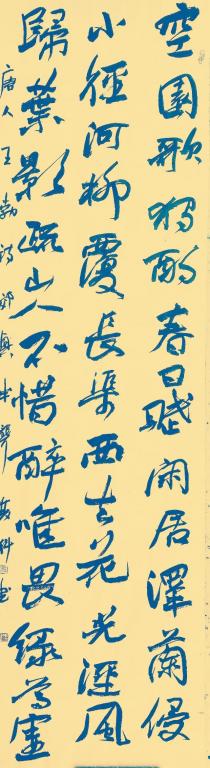 空園歌独酌春日賦闲居澤蘭侵
小徑河柳覆長渠雨去花光溼風
歸葉影疏山人不惜醉唯畏綠尊虛
唐人王勃詩郊興